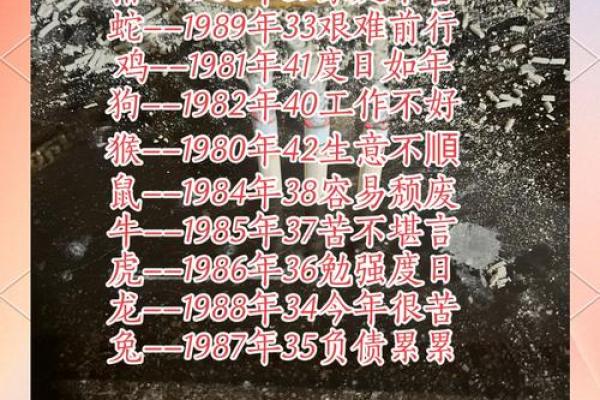 蛇--1989年33艰难前行
鸡--1981年41度日如年
狗--1982年40工作不好
猴--1980年42生意不順
鼠--1984年38容易颓废
牛--1985年37苦不堪言
虎--1986年36勉强度日
龙--1988年34今年很苦
兔--1987年35负债累累